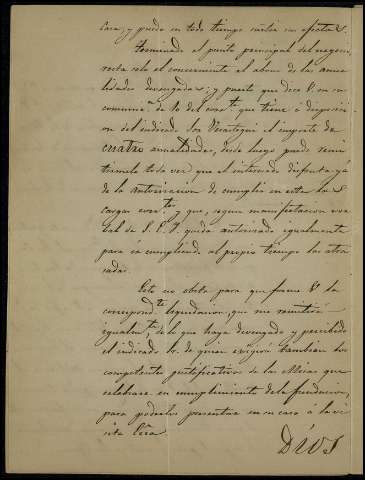 casa, y pueda en todo tiempo surtir sus efectos.
Terminado el punto principal del negocio
resta solo el concerniente al abono de las anua
lidades devengadas; y puesto que dice V. en su
comunic.n de 10 del corr.te que tiene á disposici
on del indicado Sor el importe de
cuatro anualidades, desde luego puede remi
tirmelo toda vez que el interesado disfruta ya
de la autorizacion de cumplir en esta las
cargas corr.tes y que, segun manifestacion ver
bal de S. E. I. queda autorizado igualmente
para ir cumpliendo al propio tiempo las atra
sadas.
Esto no obsta para que forme V. la
correspond.te liquidacion, que me remitirá
igualm.te, de lo que haya devengado y percibido
el indicado Sr. de quien exigirá tambien los
competentes justificativos de las Misas que
celebrase en cumplimiento de la fundacion,
para poderlos presentar en su caso á la vi
sita Ecca.
Dios